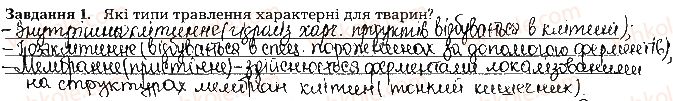 Завдання 1. Які типи травлення характерні для тварин?
- Внутрішньоклітинне (гідроліз харч. продуктів відбувається в клітині);
- Позаклітинне (відбувається в спец. порожнинах за допомогою ферментів);
- Мембранне (пристінне) - здійснюється ферментами локалізованими
на структурах мембран клітин (тонкий кишечник).